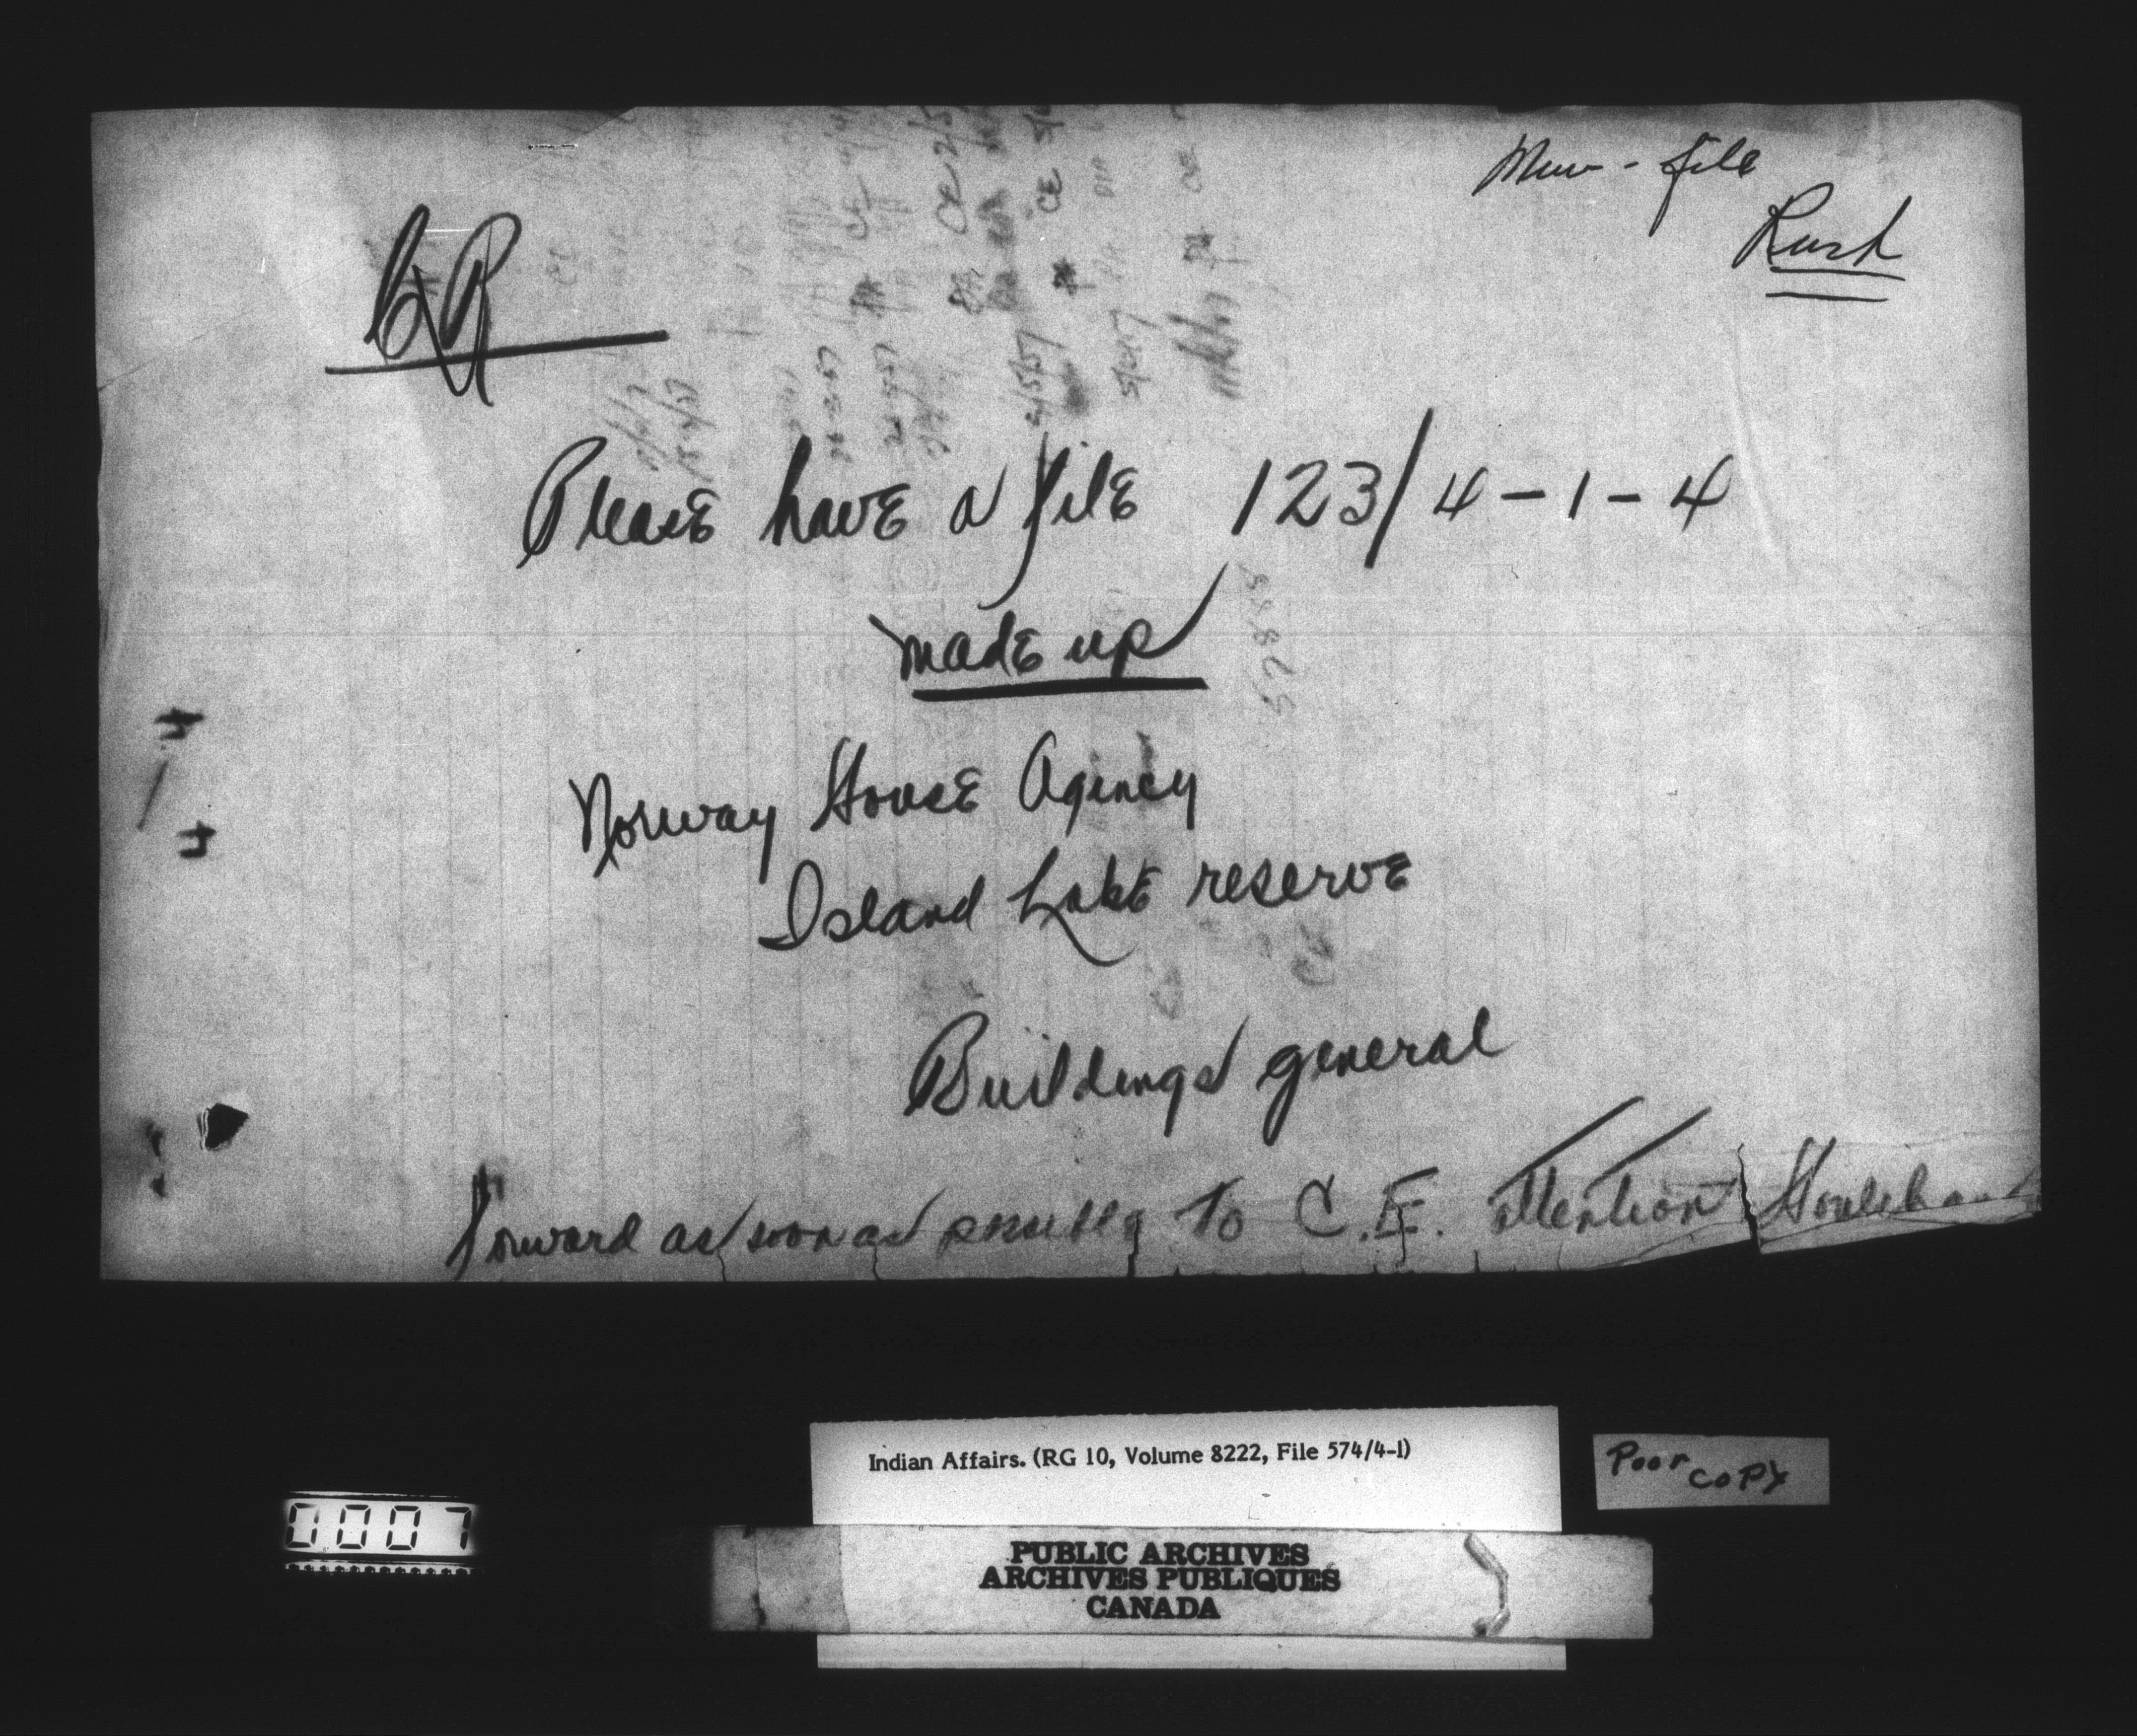 New - file
Rush
CR
Please have a file 123/4-1-4
made up
Norway House Agency
Island Lake reserve
Buildings general
Forward as soon as possible to C.E. Attention Houlihan
Indian Affairs. (RG 10, Volume 8222, File 574/4-1)
Poor copy
0007
PUBLIC ARCHIVES
ARCHIVES PUBLIQUES
CANADA